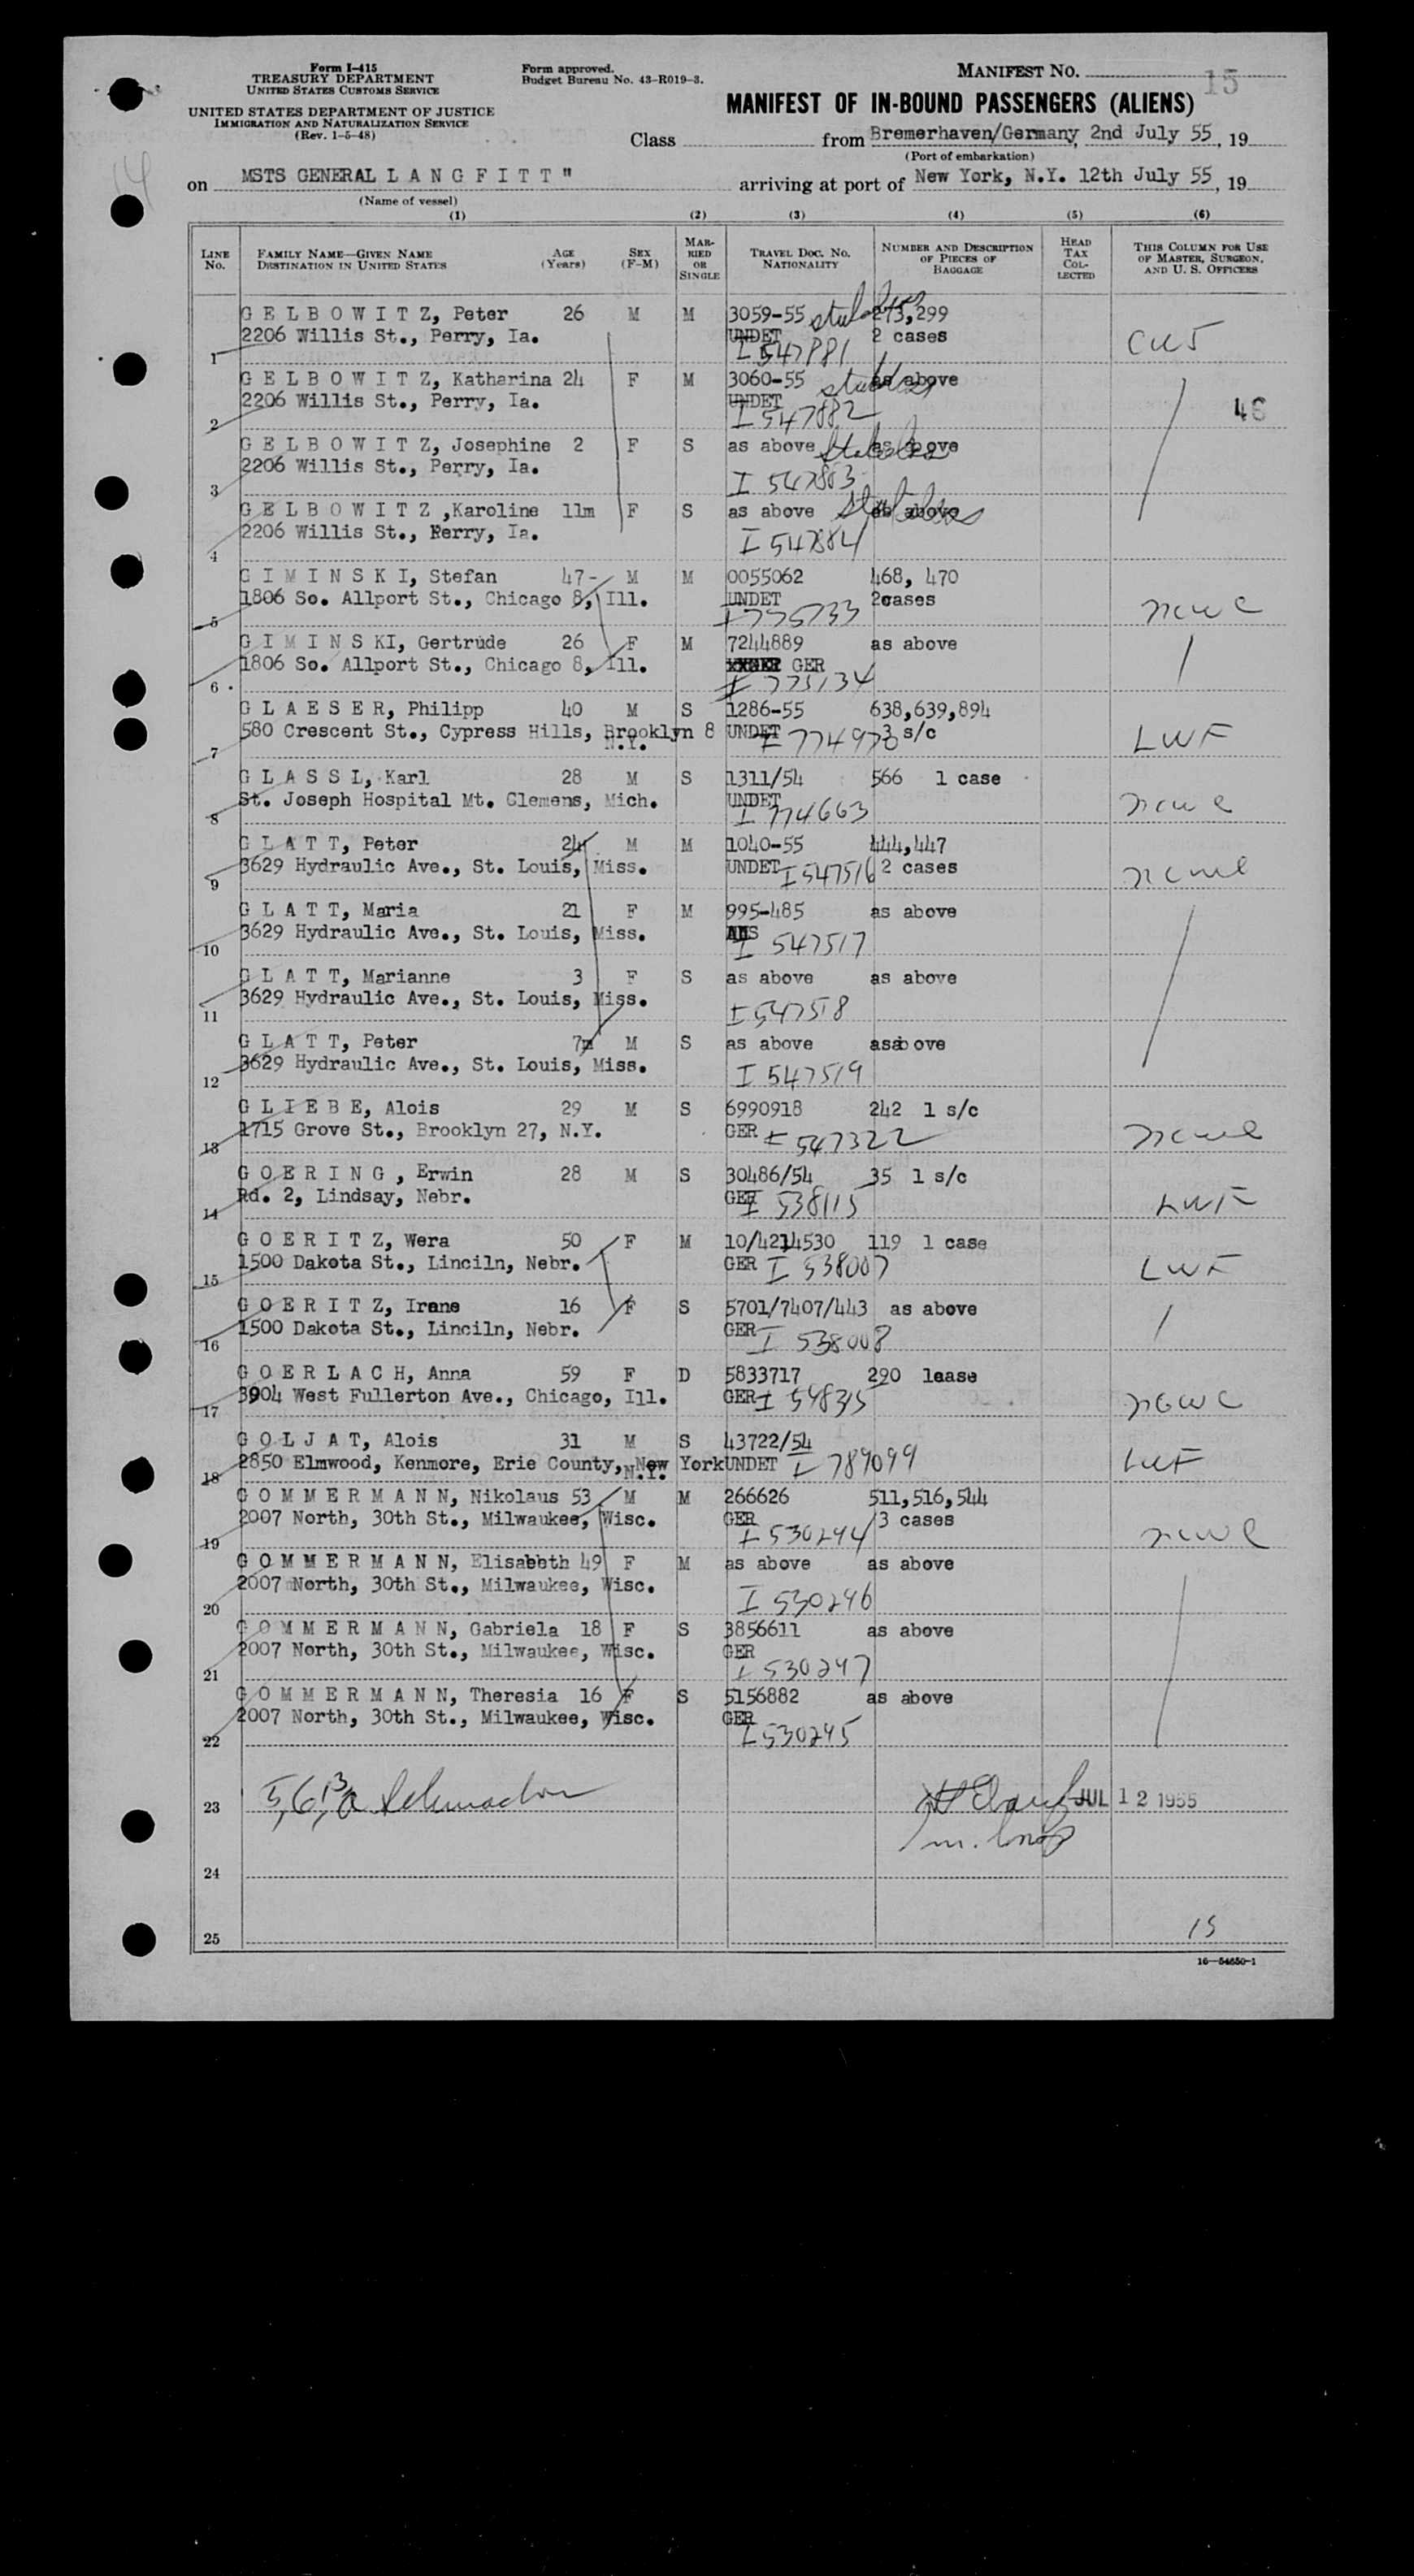 Form I-415
TREASURY DEPARTMENT
UNITED STATES CUSTOMS SERVICE
UNITED STATES DEPARTMENT OF JUSTICE
IMMIGRATION AND NATURALIZATION SERVICE
(Rev. 1-5-48)
Form approved.
Budget Bureau No. 43-R019-3.
MANIFEST NO. 15
MANIFEST OF IN-BOUND PASSENGERS (ALIENS)
Class from Bremerhaven/Germany, 2nd July 55, 19
(Port of embarkation)
on MSTS GENERAL L A N G F I T T " arriving at port of New York, N.Y. 12th July 55, 19
(Name of vessel)
(1) (2) (3) (4) (5) (6)
LINE No. FAMILY NAME—GIVEN NAME DESTINATION IN UNITED STATES AGE (Years) SEX (F-M) MARRIED OR SINGLE TRAVEL DOC. NO. NATIONALITY NUMBER AND DESCRIPTION OF PIECES OF BAGGAGE HEAD TAX COLLECTED THIS COLUMN FOR USE OF MASTER, SURGEON, AND U. S. OFFICERS
G E L B O W I T Z, Peter 26 M M 3059-55 273,299
2206 Willis St., Perry, Ia. UNDET 2 cases
1 I 547881 CWS
G E L B O W I T Z, Katharina 24 F M 3060-55 as above
2206 Willis St., Perry, Ia. UNDET 46
2 I 547882
G E L B O W I T Z, Josephine 2 F S as above as above
2206 Willis St., Perry, Ia.
3 I 547883
G E L B O W I T Z ,Karoline 11m F S as above as above
2206 Willis St., Perry, Ia.
4 I 547884
G I M I N S K I, Stefan 47 M M 0055062 468, 470
1806 So. Allport St., Chicago 8, Ill. UNDET 2cases
5 ncwc
G I M I N S KI, Gertrude 26 F M 7244889 as above
1806 So. Allport St., Chicago 8, Ill. GER
6 I 775134
G L A E S E R, Philipp 40 M S 1286-55 638,639,894
580 Crescent St., Cypress Hills, Brooklyn 8 UNDET 3 s/c
N.Y.
7 LWF
G L A S S L, Karl 28 M S 1311/54 566 1 case
St. Joseph Hospital Mt. Clemens, Mich. UNDET
8 I 774663 ncwc
G L A T T, Peter 24 M M 1040-55 444,447
3629 Hydraulic Ave., St. Louis, Miss. UNDET I 547516 2 cases
9 ncwc
G L A T T, Maria 21 F M 995-485 as above
3629 Hydraulic Ave., St. Louis, Miss.
10 I 547517
G L A T T, Marianne 3 F S as above as above
3629 Hydraulic Ave., St. Louis, Miss.
11 I 547518
G L A T T, Peter 7m M S as above asab ove
3629 Hydraulic Ave., St. Louis, Miss.
12 I 547519
G L I E B E, Alois 29 M S 6990918 242 1 s/c
1715 Grove St., Brooklyn 27, N.Y. GER I 547322
13 ncwc
G O E R I N G , Erwin 28 M S 30486/54 35 1 s/c
Rd. 2, Lindsay, Nebr. GER I 538115
14 LWF
G O E R I T Z, Wera 50 F M 10/4214530 119 1 case
1500 Dakota St., Linciln, Nebr. GER I 538007
15 LWF
G O E R I T Z, Irene 16 F S 5701/7407/443 as above
1500 Dakota St., Linciln, Nebr. GER I 538008
16
G O E R L A C H, Anna 59 F D 5833717 290 1case
3904 West Fullerton Ave., Chicago, Ill. GER
17 ncwc
G O L J A T, Alois 31 M S 43722/54
2850 Elmwood, Kenmore, Erie County, New York UNDET I 789099
N.Y.
18 LWF
G O M M E R M A N N, Nikolaus 53 M M 266626 511,516,544
2007 North, 30th St., Milwaukee, Wisc. GER 3 cases
19 I 530244 ncwc
G O M M E R M A N N, Elisabeth 49 F M as above as above
2007 North, 30th St., Milwaukee, Wisc.
20 I 530246
G O M M E R M A N N, Gabriela 18 F S 3856611 as above
2007 North, 30th St., Milwaukee, Wisc. GER
21 I 530247
G O M M E R M A N N, Theresia 16 F S 5156882 as above
2007 North, 30th St., Milwaukee, Wisc. GER
22 I 530245
23 JUL 12 1955
24
25 15
16—54650-1